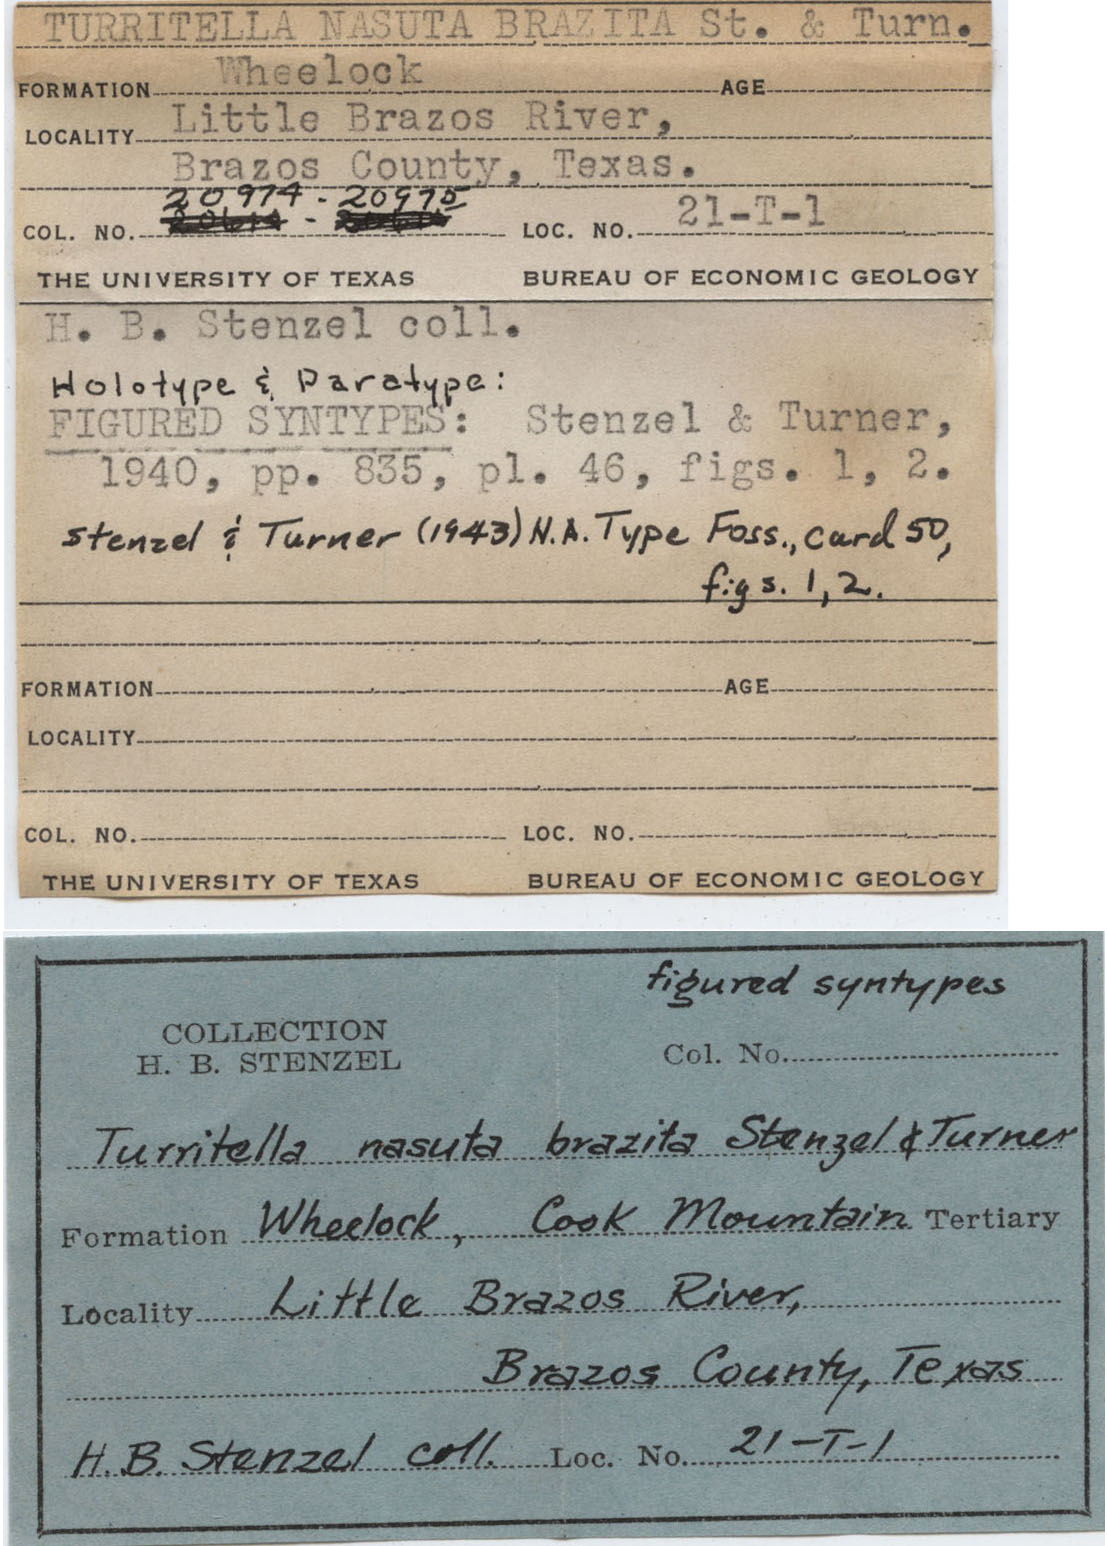 TURRITELLA NASUTA BRAZITA St. & Turn.
FORMATION Wheelock AGE
LOCALITY Little Brazos River,
Brazos County, Texas.
20,974 - 20975
COL. NO. - LOC. NO. 21-T-1
THE UNIVERSITY OF TEXAS BUREAU OF ECONOMIC GEOLOGY
H. B. Stenzel coll.
Holotype & Paratype:
FIGURED SYNTYPES: Stenzel & Turner,
1940, pp. 835, pl. 46, figs. 1, 2.
Stenzel & Turner (1943) N.A. Type Foss., card 50,
figs. 1, 2.
FORMATION AGE
LOCALITY
COL. NO. LOC. NO.
THE UNIVERSITY OF TEXAS BUREAU OF ECONOMIC GEOLOGY
figured syntypes
COLLECTION
H. B. STENZEL
Col. No.
Turritella nasuta brazita Stenzel & Turner
Formation Wheelock, Cook Mountain Tertiary
Locality Little Brazos River,
Brazos County, Texas
H. B. Stenzel coll. Loc. No. 21-T-1